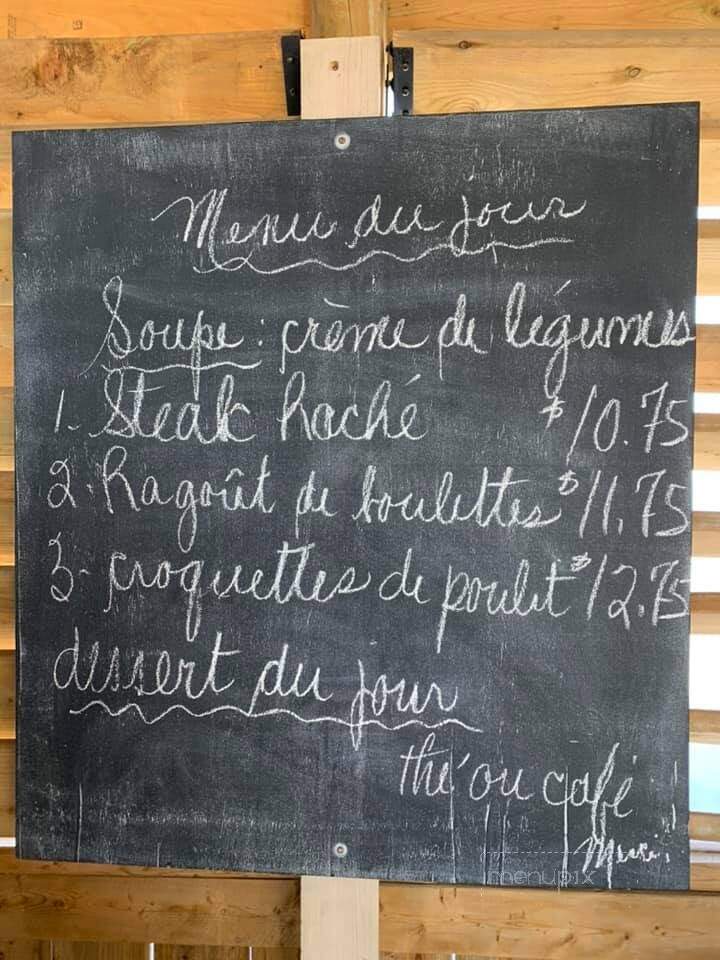 Menu du jour
Soupe : crème de légumes
1. Steak haché $10.75
2. Ragoût de boulettes $11.75
3- croquettes de poulet $12.75
dessert du jour
thé ou café
Merci.
menupix